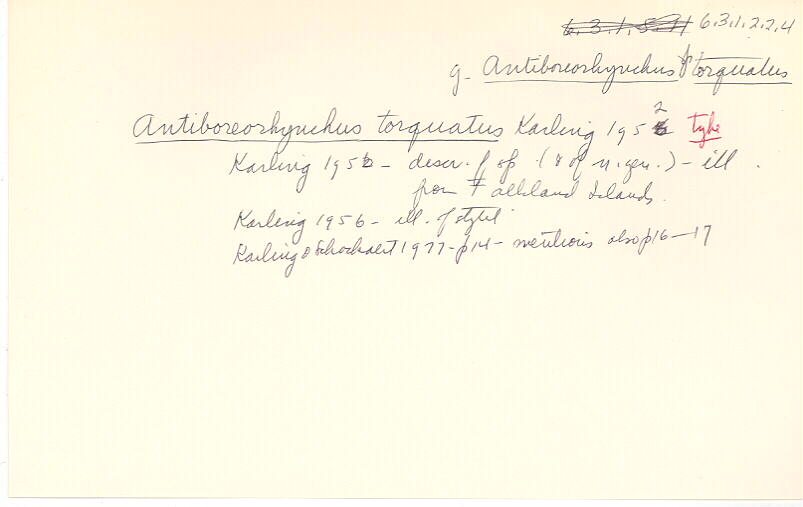 6.3.1.5.11 6.3.1.2.2.4
g. Antiboreorhynchus torquatus
Antiboreorhynchus torquatus Karling 1952 type
Karling 1952 – descr. of sp. (& of n. gen.) – ill.
from Falkland Islands.
Karling 1956 – ill. of stylet
Karling & Schockaert 1977 – p14 – mentions also p16–17